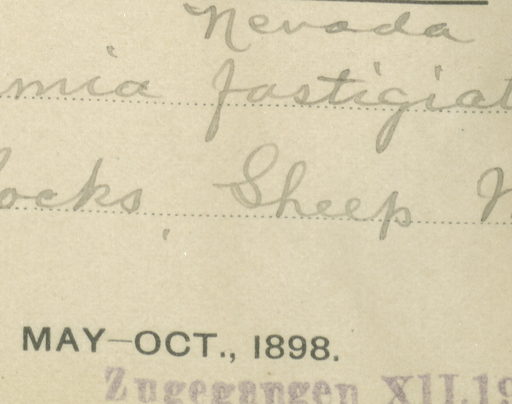 Nevada
mia fastigiat
ocks, Sheep
MAY–OCT., 1898.
Zugegangen XII.19